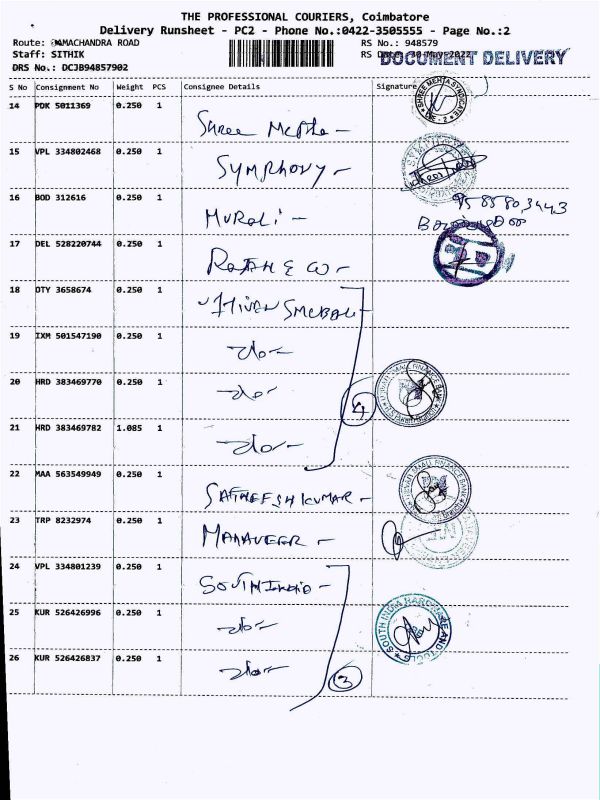 THE PROFESSIONAL COURIERS, Coimbatore
Delivery Runsheet - PC2 - Phone No.:0422-3505555 - Page No.:2
Route: RAMACHANDRA ROAD
RS No.: 948579
Staff: SITHIK
RS Date: 30 May 2022
DOCUMENT DELIVERY
DRS No.: DCJB94857902
S No Consignment No Weight PCS Consignee Details Signature
14 PDK 5011369 0.250 1 Shree Mehta -
SHREE MEHTA SYNDICATE CBE - 2
15 VPL 334802468 0.250 1 Symphony -
16 BOD 312616 0.250 1 Murali -
17 DEL 528220744 0.250 1
18 OTY 3658674 0.250 1
19 IXM 501547190 0.250 1 -do-
20 HRD 383469770 0.250 1 -do-
4
21 HRD 383469782 1.085 1 -do-
22 MAA 563549949 0.250 1 Satheesh Kumar -
SMALL FINANCE BANK
23 TRP 8232974 0.250 1 Mahaveer -
24 VPL 334801239 0.250 1 South India -
25 KUR 526426996 0.250 1 -do-
SOUTH INDIA HARDWARE AND TOOLS
26 KUR 526426837 0.250 1 -do-
3